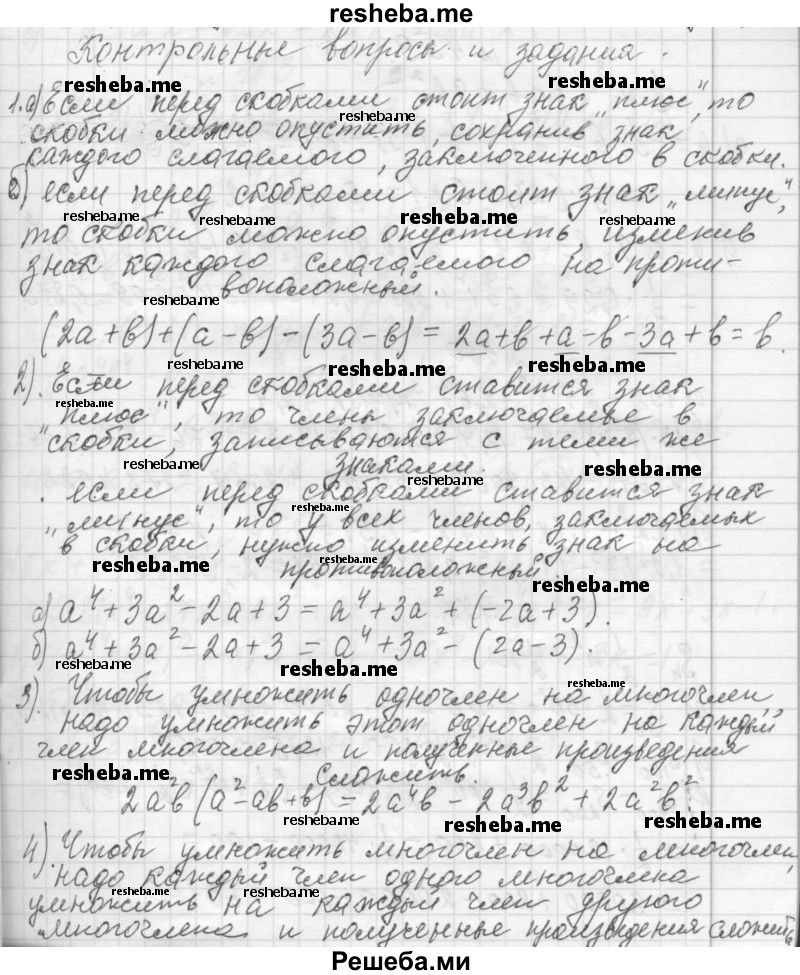 resheba.me
Контрольные вопросы и задания.
resheba.me resheba.me
1. а) Если перед скобками стоит знак „плюс", то
resheba.me
скобки можно опустить, сохранив знак
каждого слагаемого, заключенного в скобки.
б) если перед скобками стоит знак „минус",
resheba.me resheba.me resheba.me
то скобки можно опустить, изменив
знак каждого слагаемого на проти-
resheba.me
воположный.
(2a+b)+(a-b)-(3a-b) = 2a+b+a-b-3a+b = b.
resheba.me resheba.me
2). Если перед скобками ставится знак
resheba.me
„плюс", то члены заключаемые в
скобки, записываются с теми же
resheba.me resheba.me
знаками.
resheba.me
. если перед скобками ставится знак
resheba.me
„минус", то у всех членов, заключаемых
в скобки, нужно изменить знак на
resheba.me resheba.me
противоположный.
resheba.me
а) a⁴+3a²-2a+3 = a⁴+3a²+(-2a+3).
б) a⁴+3a²-2a+3 = a⁴+3a²-(2a-3).
resheba.me resheba.me
resheba.me
3). Чтобы умножить одночлен на многочлен,
надо умножить этот одночлен на каждый
член многочлена и полученные произведения
resheba.me resheba.me
сложить.
2a²b(a²-ab+b) = 2a⁴b - 2a³b² + 2a²b².
resheba.me resheba.me resheba.me
4). Чтобы умножить многочлен на многочлен,
надо каждый член одного многочлена
resheba.me resheba.me
умножить на каждый член другого
многочлена и полученные произведения сложить
resheba.me resheba.me
Решеба.ми